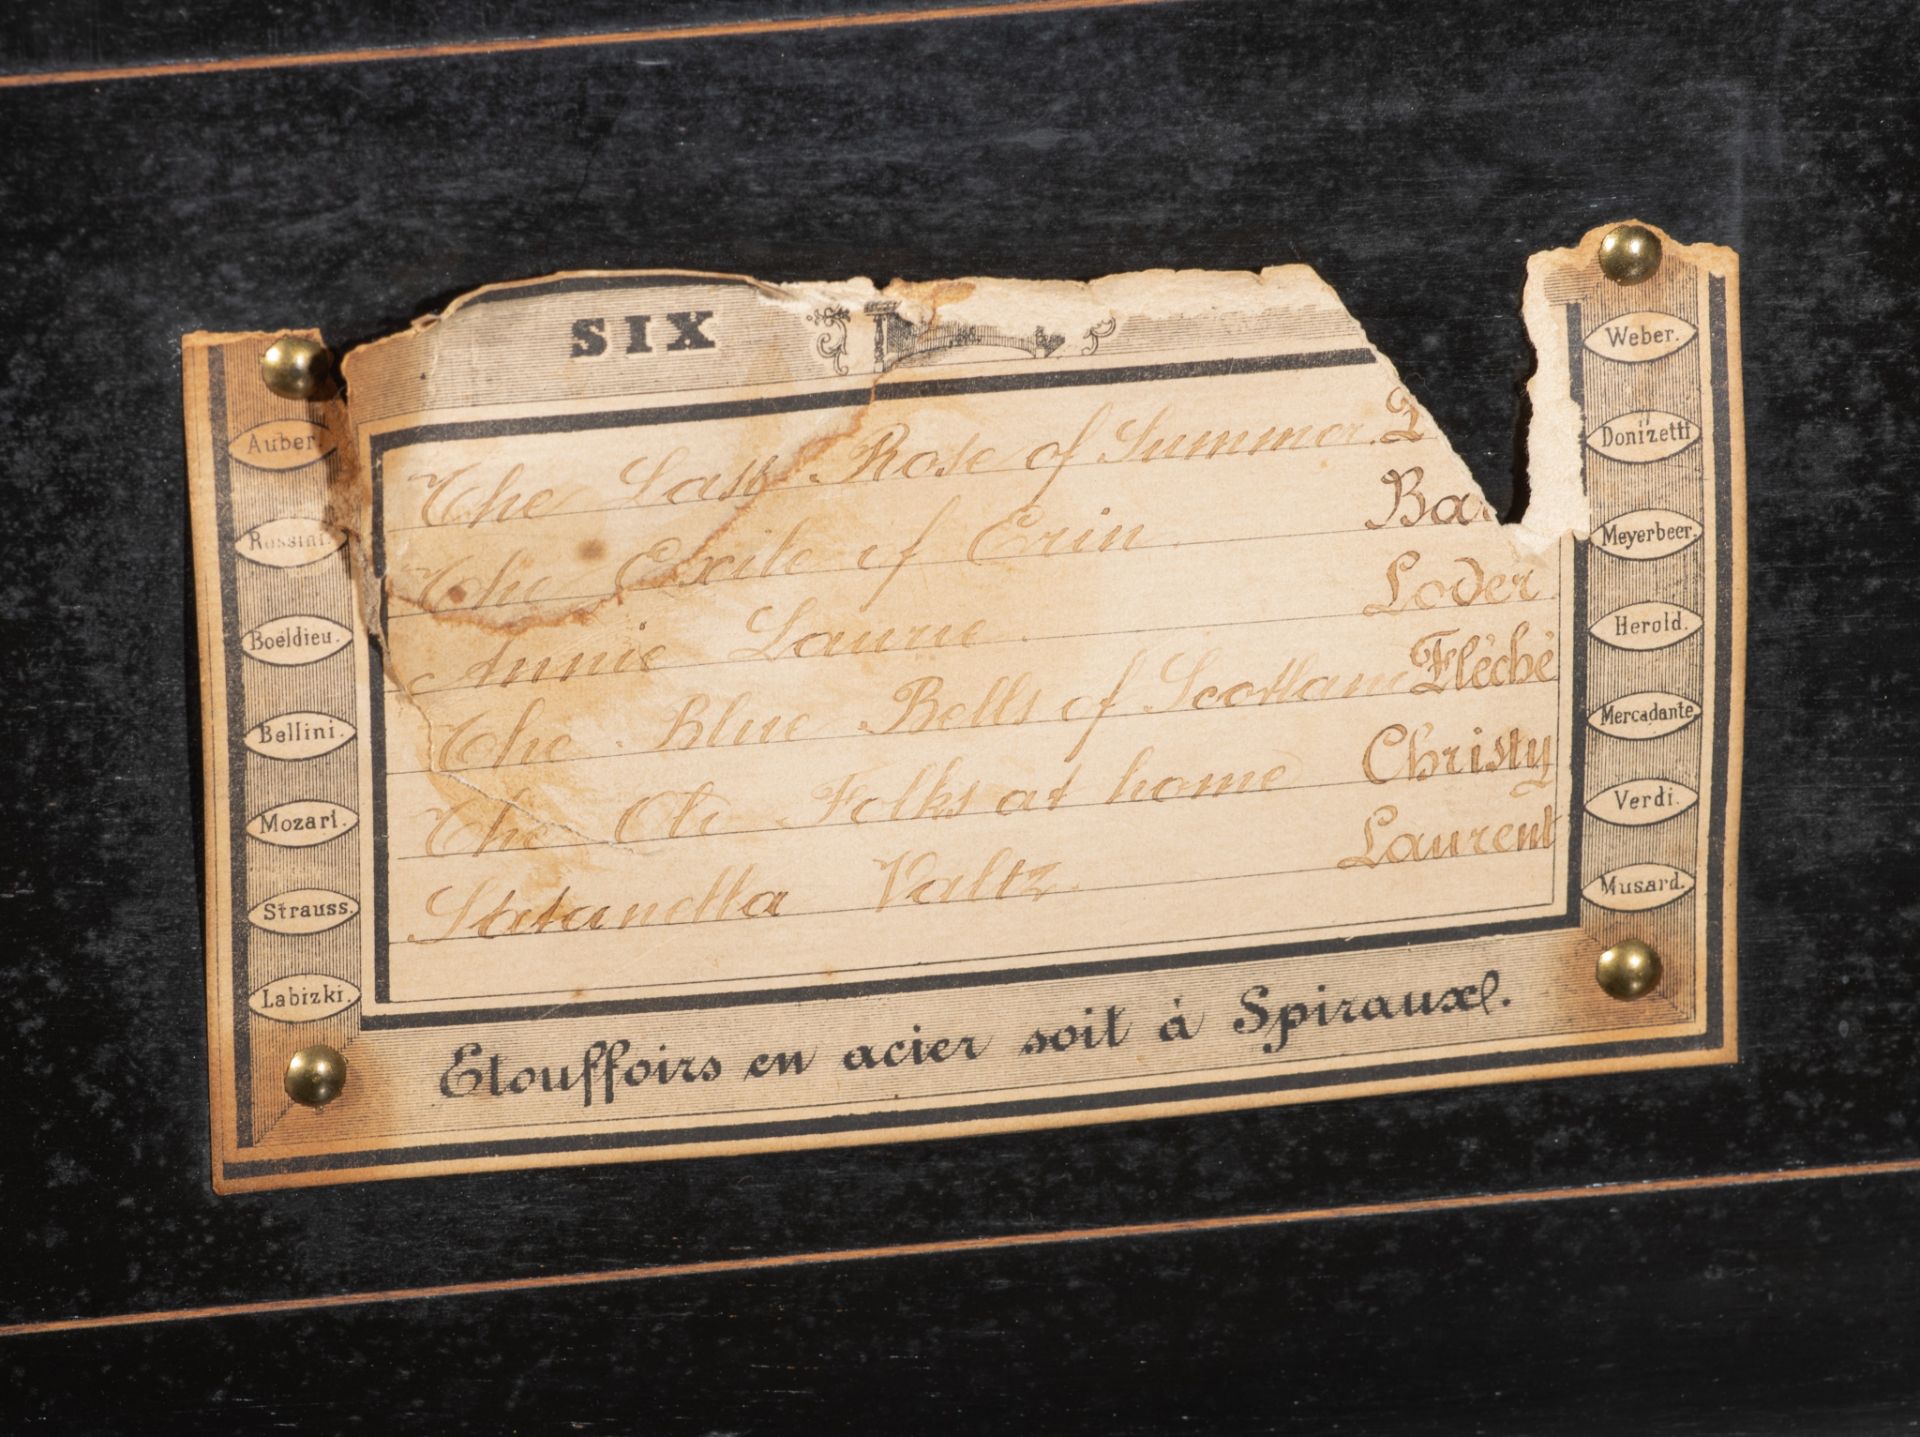 SIX
The Last Rose of Summer.
The Exile of Erin.
Annie Laurie. Loder
The Blue Bells of Scotlan Flèché
The Ole Folks at home Christy
Statanella Valtz. Laurent
Etouffoirs en acier soit à Spiraux.
Auber.
Rossini.
Boëldieu.
Bellini.
Mozart.
Strauss.
Labizki.
Weber.
Donizetti
Meyerbeer.
Herold.
Mercadante
Verdi.
Musard.